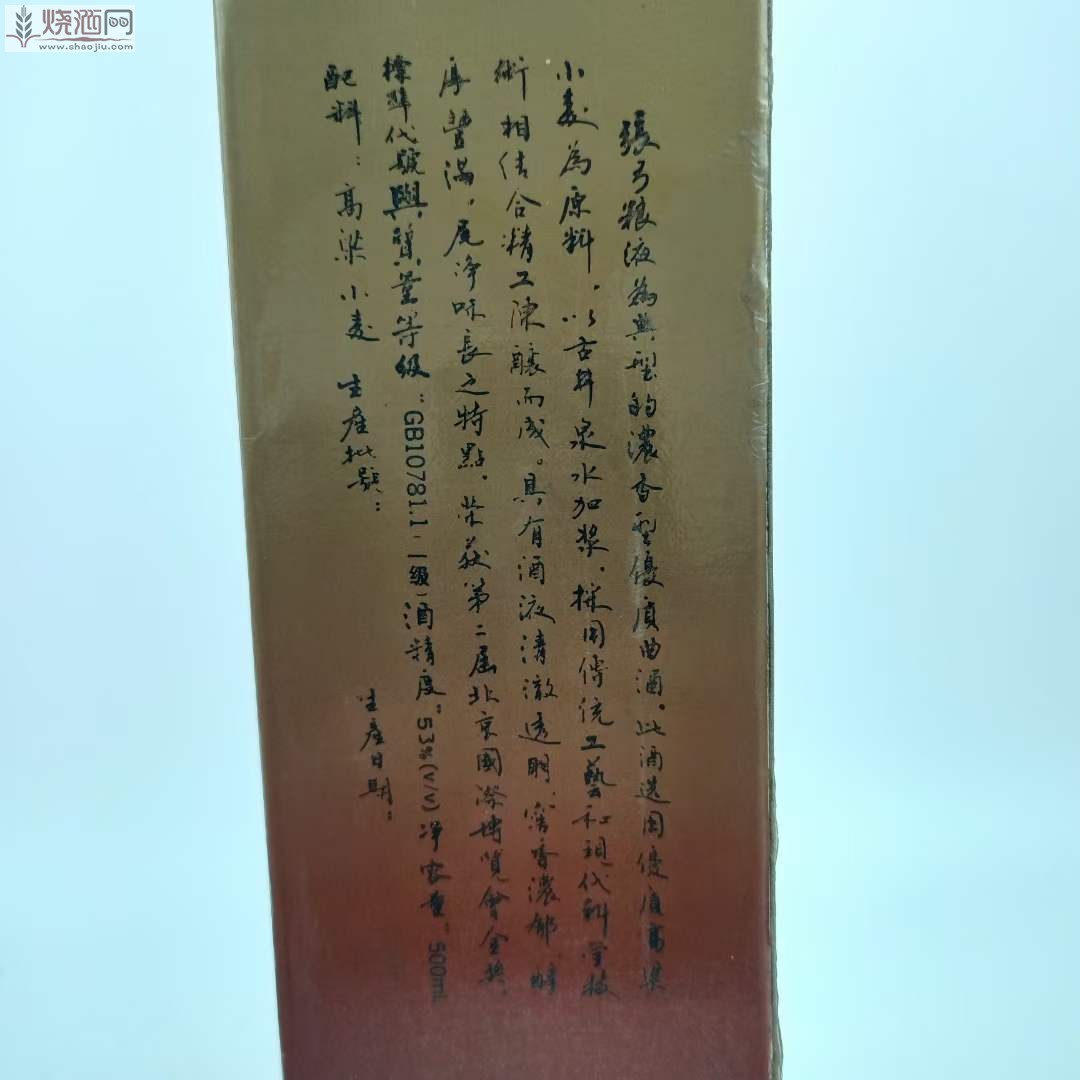 烧酒网
www.shaojiu.com
張弓粮液為典型的濃香型優質曲酒。此酒选用優质高粱
小麦為原料，以古井泉水加漿，採用傳统工藝和現代科学技
術相结合精工陳釀而成。具有酒液清澈透明，窖香濃郁，醇
厚豐滿，尾净味長之特點，荣获第二届北京國際博览會金奖。
標準代號與質量等级“GB10781.1（一级）酒精度“53%(V/V)净容量“500mL
配料：高粱小麦 生產批號： 生產日期：